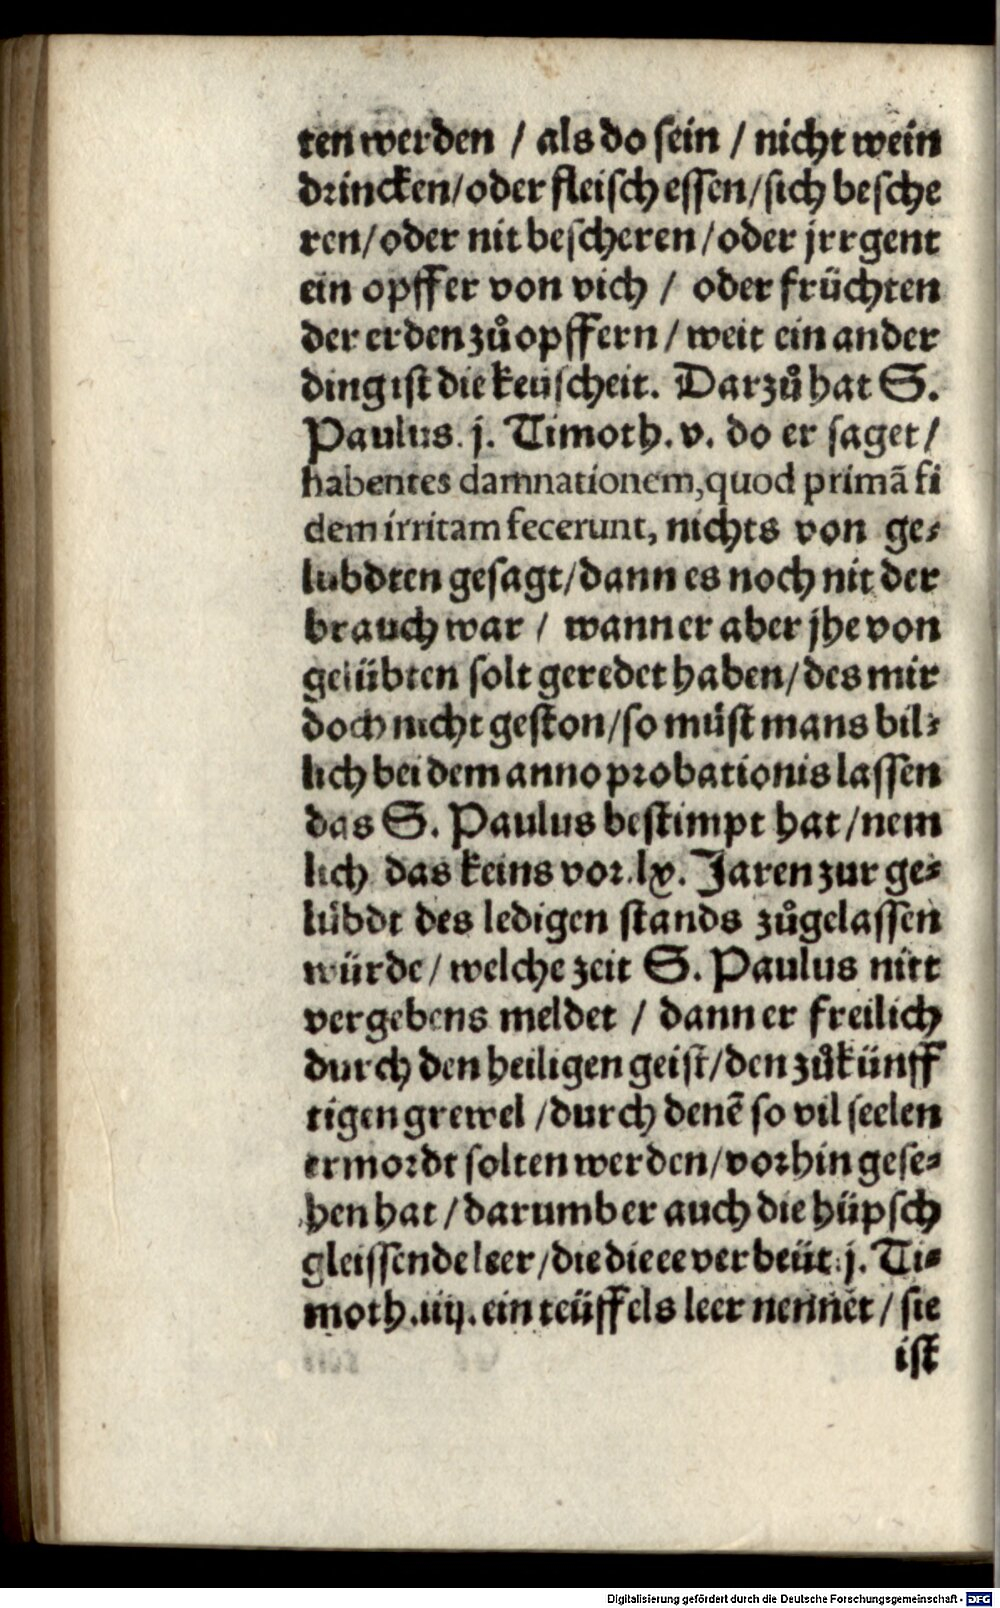 ten werden / als do sein / nicht wein
drincken/oder fleisch essen/sich besche
ren/oder nit bescheren/oder jrrgent
ein opffer von vich / oder früchten
der erden zůopffern/weit ein ander
ding ist die keuscheit. Darzů hat S.
Paulus. j. Timoth. v. do er saget/
habentes damnationem,quod primã fi
dem irritam fecerunt, nichts von ge⸗
lubdten gesagt/dann es noch nit der
brauch war / wann er aber jhe von
gelübten solt geredet haben/des mir
doch nicht geston/so müst mans bil⸗
lich bei dem anno probationis lassen
das S. Paulus bestimpt hat/nem
lich das keins vor.lx. Jaren zur ge⸗
lübdt des ledigen stands zůgelassen
würde/welche zeit S. Paulus nitt
vergebens meldet / dann er freilich
durch den heiligen geist/den zůkünff
tigen grewel /durch denẽ so vil seelen
ermordt solten werden/vorhin gese⸗
hen hat /darumb er auch die hüpsch
gleissende leer/die die ee verbeüt.j. Ti⸗
moth.iiij. ein teüffels leer nennet/ sie
ist
Digitalisierung gefördert durch die Deutsche Forschungsgemeinschaft - DFG